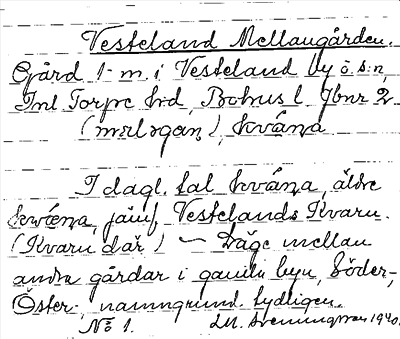 Vesteland Mellangården.
Gård 1 m. i Vesteland by ö. s:n,
Inl Torpe hrd, Bohus l. Jbnr 2
(mæləgan), kváṇa
I dagl. tal kváṇa, äldre
kwǽṇa, jämf. Vestelands Kvarn.
(Kvarn där) — Läge mellan
andra gårdar i gamla byn, Söder-,
Öster-, namngrund. tydligen.
No 1. 1940.